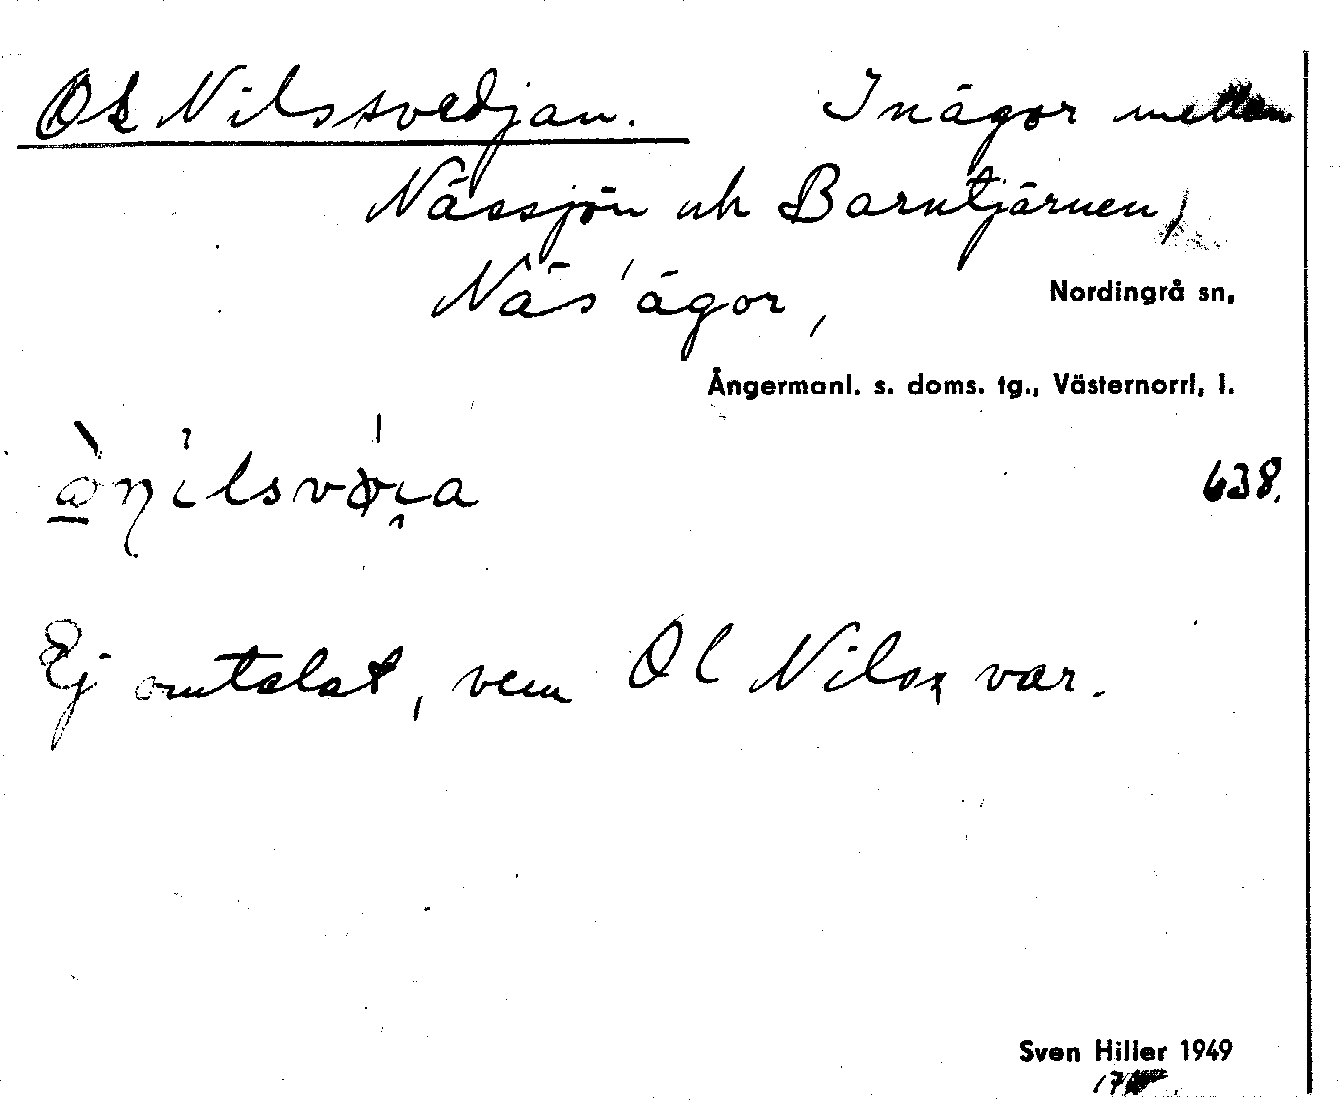 Ol Nilssvedjan. Inägor mellan
Nässjön och Barntjärnen,
Näs' ägor,
Nordingrå sn,
Ångermanl. s. doms. tg., Västernorrl, l.
638.
Ej omtalat, vem Ol Nils var.
Sven Hiller 1949